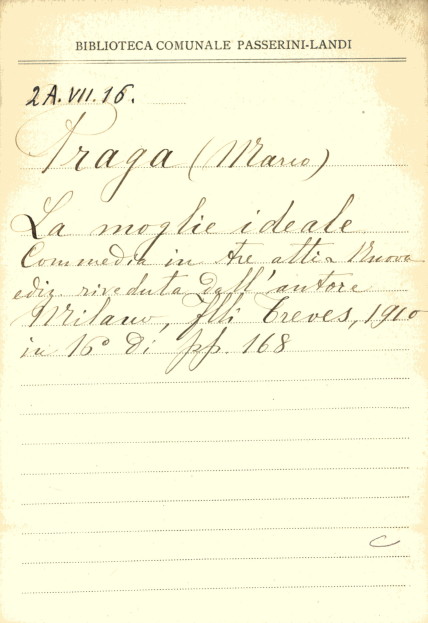 BIBLIOTECA COMUNALE PASSERINI-LANDI
2A.VII.16.
Praga (Marco)
La moglie ideale
Commedia in tre atti - Nuova
ediz. riveduta dall'autore
Milano, F.lli Treves, 1910
in 16° di pp. 168
C